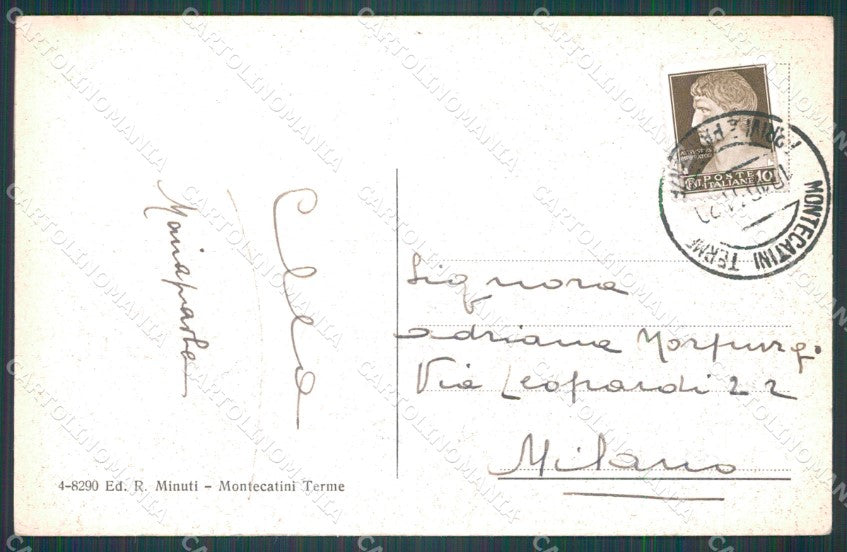 Mariapaola
Clea
4-8290 Ed. R. Minuti - Montecatini Terme
POSTE
ITALIANE
10
MONTECATINI TERME
Signora
adriana Morpurgo
Via Leopardi 22
Milano
CARTOLINOMANIA